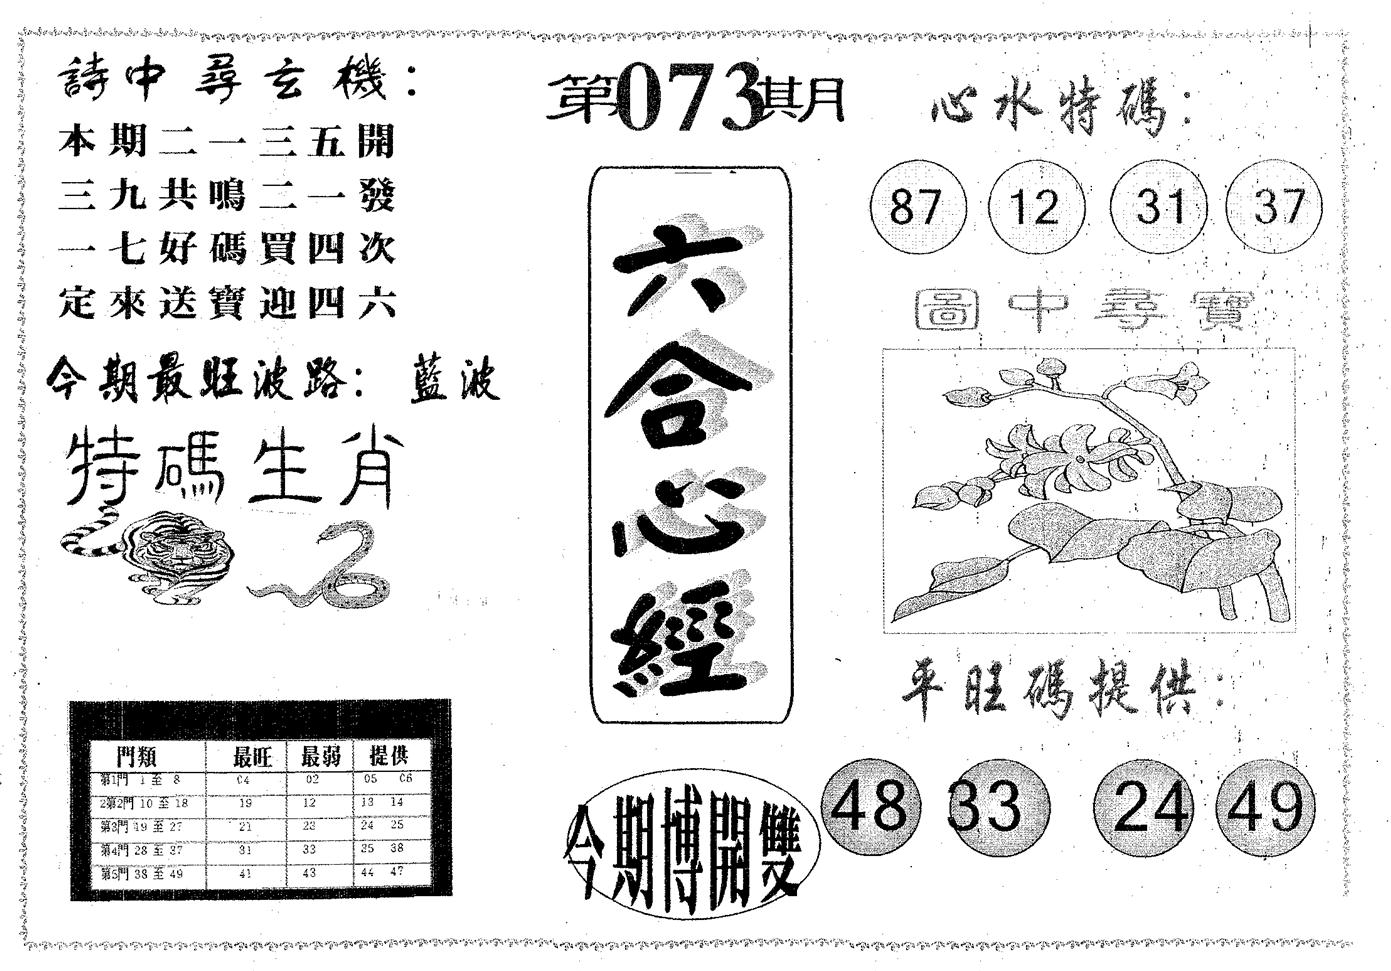 詩中尋玄機：
本期二一三五開
三九共鳴二一發
一七好碼買四次
定來送寶迎四六
今期最旺波路：藍波
特碼生肖
門類 最旺 最弱 提供
第1門 1 至 8 04 02 05 06
2第2門 10 至 18 19 12 13 14
第3門 49 至 27 21 23 24 25
第4門 28 至 37 31 33 35 38
第5門 38 至 49 41 43 44 47
第073其月
六合心經
今期博開雙
心水特碼：
87 12 31 37
圖中尋寶
平旺碼提供：
48 33 24 49